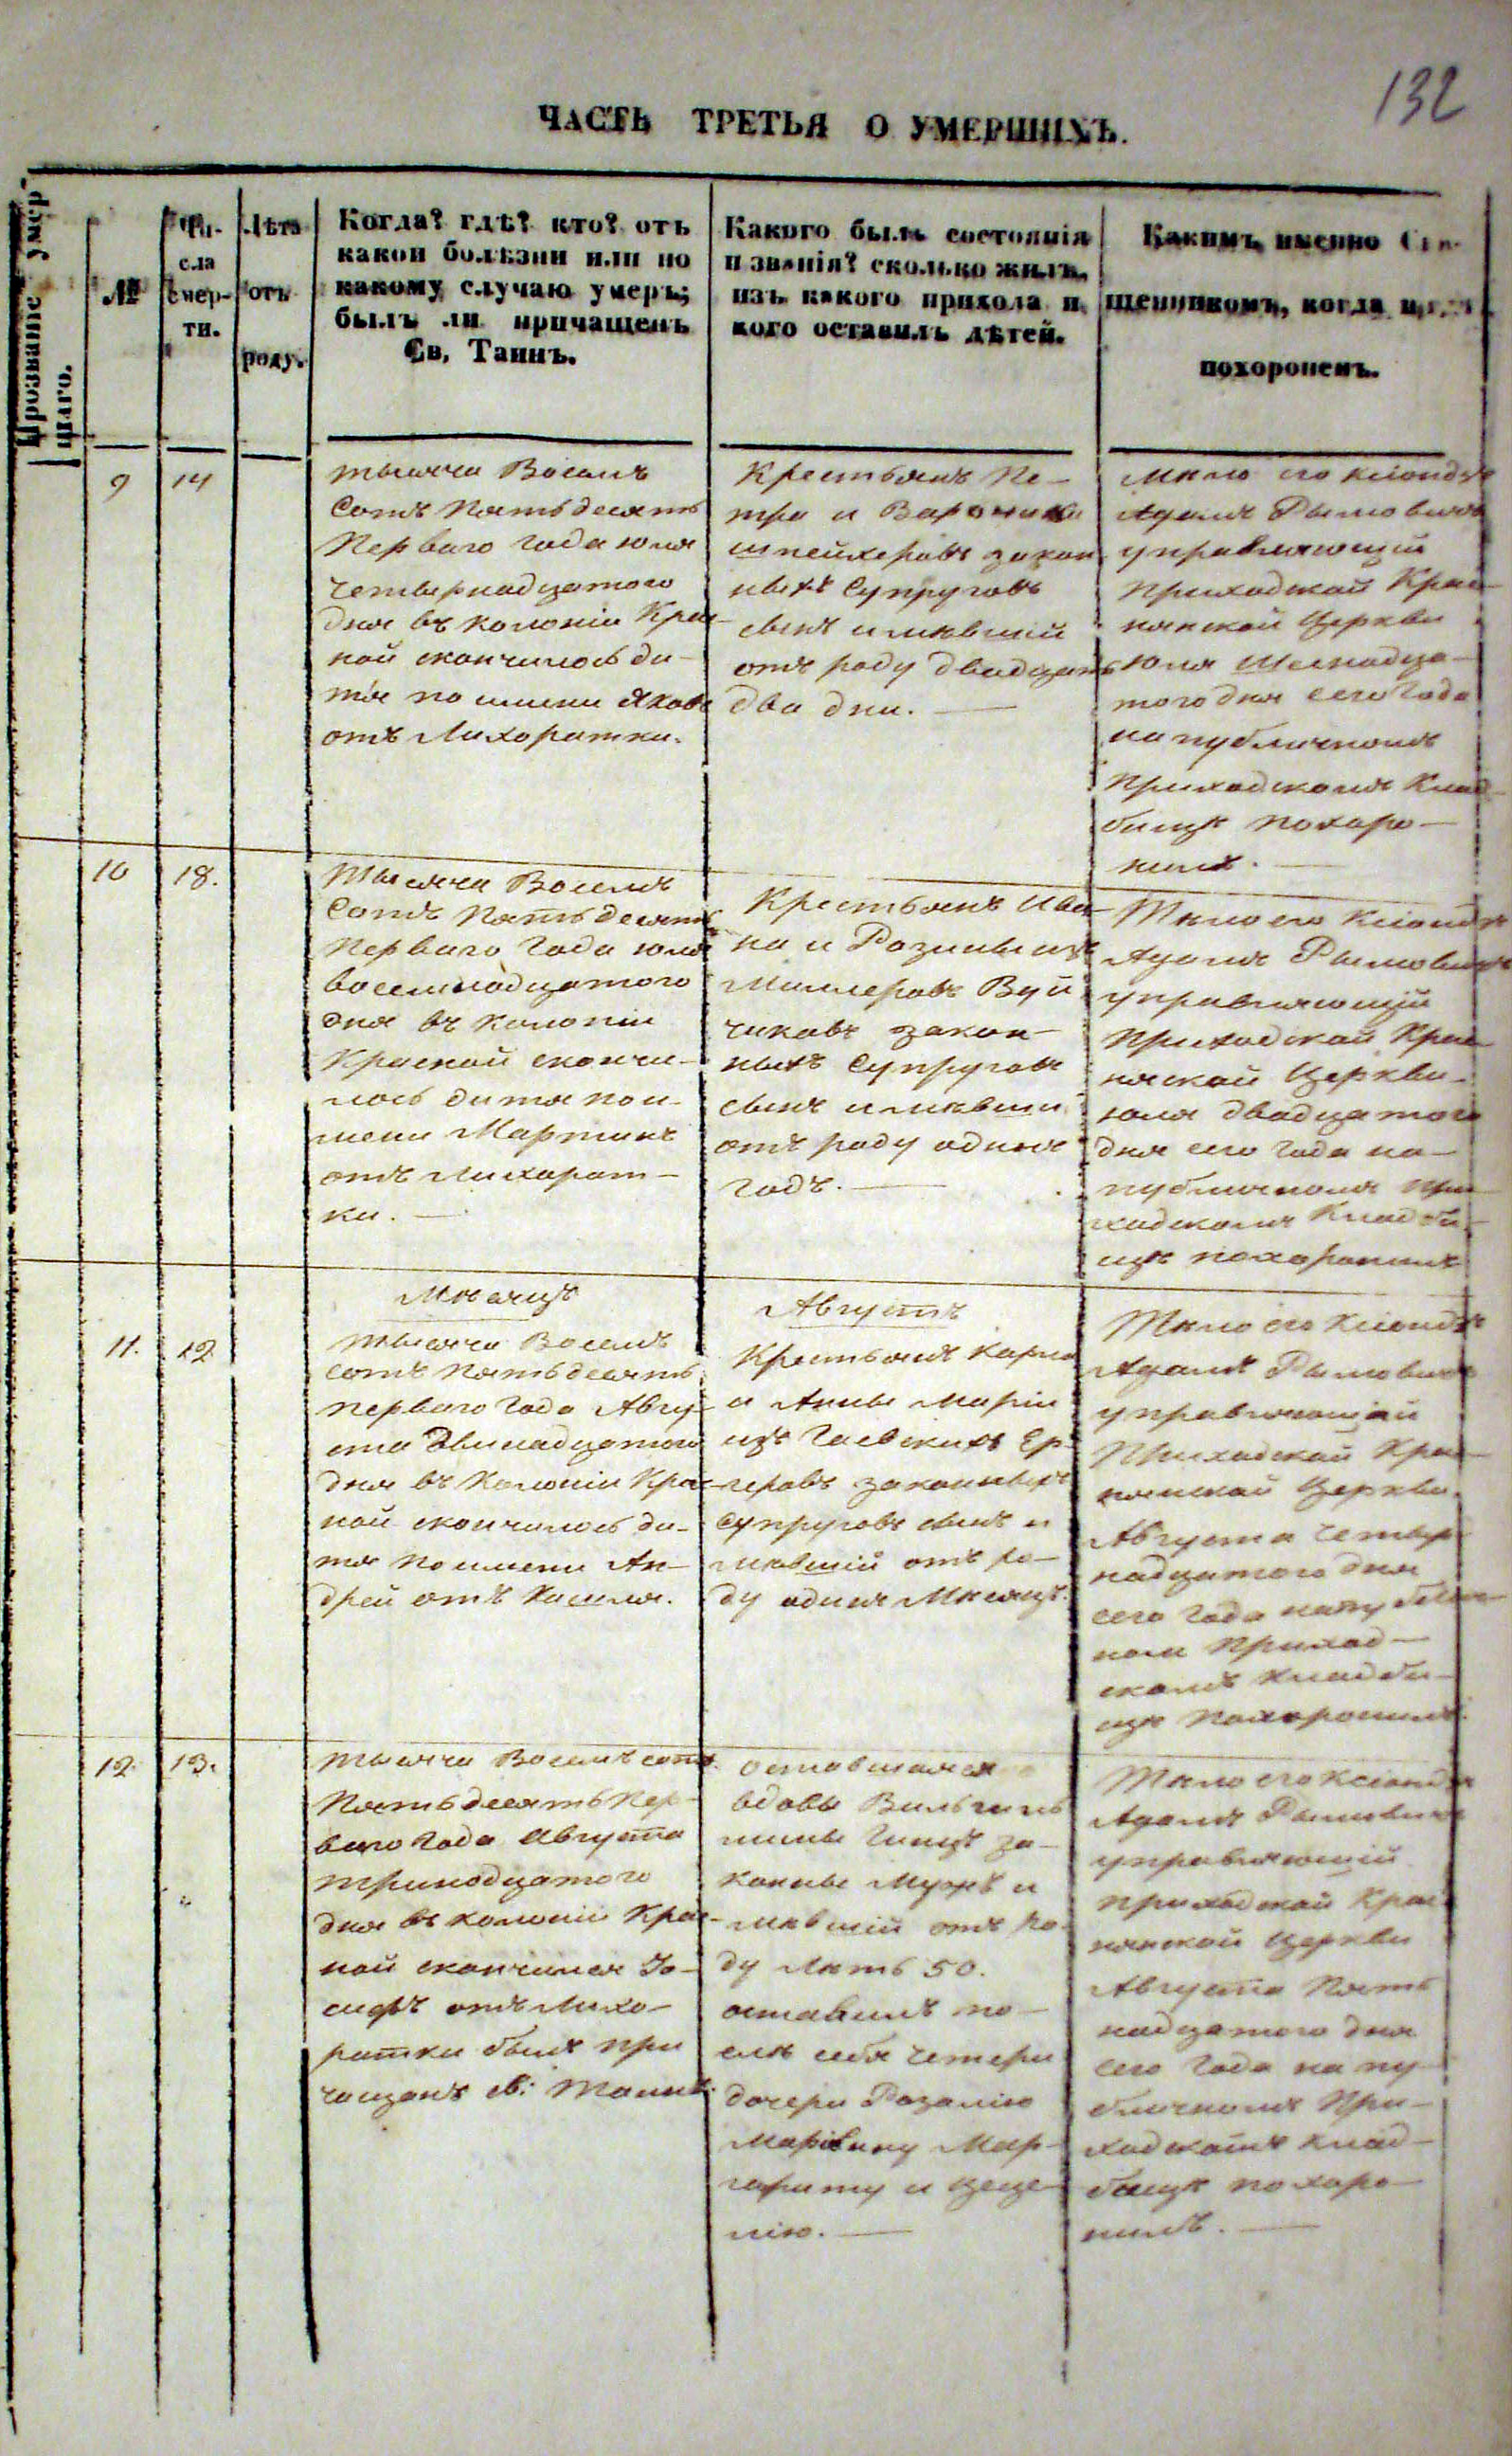 132
ЧАСТЬ ТРЕТЬЯ О УМЕРШИХЪ.
Прозваніе умер-
шаго.
№
Чи-
сла
смер-
ти.
Лѣта
отъ
роду.
Когда? гдѣ? кто? отъ
какой болѣзни или по
какому случаю умеръ;
былъ ли причащенъ
Св, Таинъ.
Какого былъ состоянія
и званія? сколько жилъ,
изъ какого прихола и
кого оставилъ дѣтей.
Какимъ именно Свя-
щенникомъ, когда и гдѣ
похороненъ.
9
14
тысяча Восемъ
Сотъ Пятьдесятъ
Перваго года юля
четырнадцатого
дня въ колоніи Крас-
ной скончилось ди-
тя по имени Яковъ
отъ Лихоратки.
Крестьянъ Пе-
тра и Вароники
шпейхеровъ закон
ныхъ Супруговъ
сынъ имѣвшій
отъ роду двадцать
два дни.
тѣло его Ксіондзъ
Адамъ Рымовичъ
управляющій
Приходской Крас-
нянской Церкви
юля Шеснадца-
того дня сего Года
на публичномъ
Приходскомъ Клад-
бищѣ похоро-
нилъ.
10
18.
Тысяча Восемъ
Сотъ Пятьдесятъ
Перваго Года юля
восемнадцатого
дня въ колоніи
Красной скончи-
лось дитя по и-
мени Мартинъ
отъ лихорат-
ки.
Крестьянъ Ива-
на и Розины изъ
Миллеровъ Вуй
чиковъ закон-
ныхъ Супруговъ
сынъ имѣвши
отъ роду одинъ
годъ.
Тѣло его Ксіондзъ
Адамъ Рымовичъ
управляющій
Приходской Крас-
нянской Церкви
юля двадцатого
дня сего Года на-
публичномъ При
ходскомъ Кладби-
щѣ похоронилъ
Мѣсяцъ
Августъ
11.
12
тысяча Восемъ
сотъ Пятьдесятъ
перваго Года Авгу-
ста Двинадцатого
дня въ Колоніи Крас-
ной скончилось ди-
тя по имени Ан-
дрей отъ Кашля.
Крестьянъ Карла
и Анны Маріи
изъ Гаевскихъ Ер-
леровъ законныхъ
Супруговъ сынъ и
мѣвшій отъ ро-
ду одинъ Мѣсяцъ.
Тѣло его Ксіондзъ
Адамъ Рымовичъ
управляющій
Приходской Крас-
нянской Церкви
Августа четыр
надцатого дня
сего Года на публич-
ном Приход-
скомъ Кладби-
щѣ Похоронилъ.
12.
13.
тысяча Восемъ сотъ
Пятьдесятъ Пер-
ваго Года Августа
тринадцатого
дня въ колоніи Крас-
ной скончился Іо-
сифъ отъ Лихо-
ратки былъ при
чащонъ св: Таинъ.
оставшаяся
вдовы Вильгель
мины Гинцъ за-
конны Мужъ и
мѣвшій отъ ро-
ду Лѣтъ 50.
оставилъ по-
слѣ себя четери
дочери Розалію
Маріянну Мар-
гариту и Цеце-
лію.
Тѣло его Ксіондзъ
Адамъ Рымовичъ
управляющій
приходской Крас-
нянской Церкви
Августа Пять
надцатого дня
сего Года на пу-
бличномъ При-
ходскомъ клад-
бищѣ похоро-
нилъ.